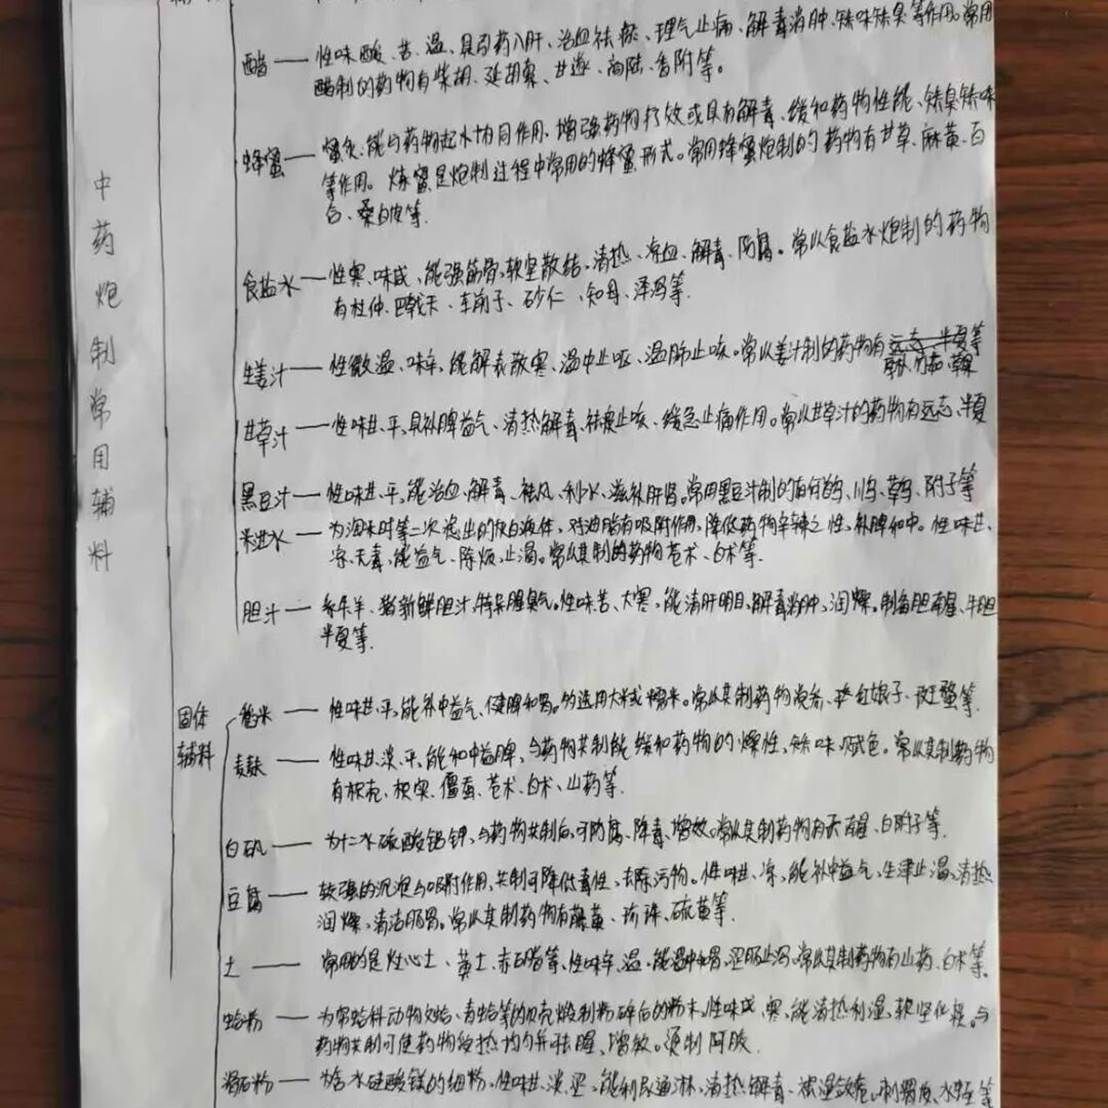 中药炮制常用辅料
醋 —— 性味酸、苦、温,具引药入肝、治血祛瘀、理气止痛、解毒消肿、矫味矫臭等作用。常用
醋制的药物有柴胡、延胡索、甘遂、商陆、香附等。
蜂蜜 —— 蜜炙,能与药物起水协同作用,增强药物疗效或具有解毒、缓和药物性能、矫臭矫味
等作用。炼蜜是炮制过程中常用的蜂蜜形式。常用蜂蜜炮制的药物有甘草、麻黄、百
合、桑白皮等.
食盐水 —— 性寒、味咸、能强筋骨、软坚散结、清热、凉血、解毒、防腐。常以食盐水炮制的药物
有杜仲、巴戟天、车前子、砂仁、知母、泽泻等.
生姜汁 —— 性微温、味辛,能解表散寒、温中止呕、温肺止咳。常以姜汁制的药物有
甘草汁 —— 性味甘、平,具补脾益气、清热解毒、祛痰止咳、缓急止痛作用。常以甘草汁的药物有远志、半夏
黑豆汁 —— 性味甘、平,能治血、解毒、祛风、利水、滋补肝肾。常用黑豆汁制的有何首乌、川乌、草乌、附子等
米泔水 —— 为淘米时第二次滤出的灰白液体,对油脂有吸附作用,降低药物辛辣之性、补脾和中。性味甘、
凉,无毒,能益气、除烦、止渴。常以其制的药物苍术、白术等.
胆汁 —— 系牛羊、猪新鲜胆汁,特异腥臭气。性味苦、大寒,能清肝明目、解毒消肿、润燥。制备胆南星、牛胆
半夏等.
固体
辅料
稻米 —— 性味甘、平,能补中益气、健脾和胃。多选用大米或糯米。常以其制药物党参、红娘子、斑蝥等.
麦麸 —— 性味甘、淡、平,能和中益脾,与药物共制能缓和药物的燥性、矫味、赋色。常以其制药物
有枳壳、枳实、僵蚕、苍术、白术、山药等.
白矾 —— 为十二水硫酸铝钾,与药物共制后,可防腐、降毒、增效。常以其制药物有天南星、白附子等.
豆腐 —— 较强的沉淀与吸附作用,共制可降低毒性、去除污物。性味甘、凉,能补中益气、生津止渴、清热
润燥、清洁肠胃。常以其制药物有藤黄、珍珠、硫黄等.
土 —— 常用的是灶心土、黄土、赤石脂等,性味辛、温,能温中和胃、涩肠止泻。常以其制药物有山药、白术等.
蛤粉 —— 为帘蛤科动物文蛤、青蛤等的贝壳煅制粉碎后的粉末,性味咸、寒,能清热利湿、软坚化痰。与
药物共制可使药物受热均匀并祛腥、增效。烫制阿胶.
滑石粉 —— 为含水硅酸镁的细粉,性味甘、淡、涩,能利尿通淋、清热解毒、祛湿敛疮。制刺猬皮、水蛭等